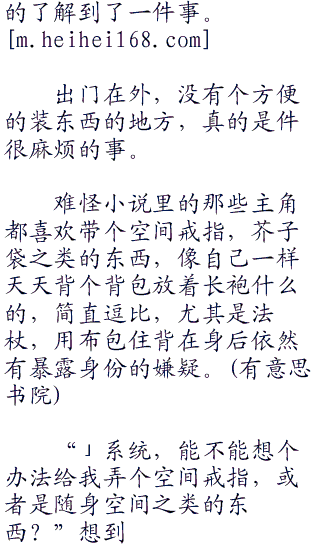 的了解到了一件事。
[m.heihei168.com]
出门在外，没有个方便
的装东西的地方，真的是件
很麻烦的事。
难怪小说里的那些主角
都喜欢带个空间戒指，芥子
袋之类的东西，像自己一样
天天背个背包放着长袍什么
的，简直逗比，尤其是法
杖，用布包住背在身后依然
有暴露身份的嫌疑。(有意思
书院)
“」系统，能不能想个
办法给我弄个空间戒指，或
者是随身空间之类的东
西？”想到